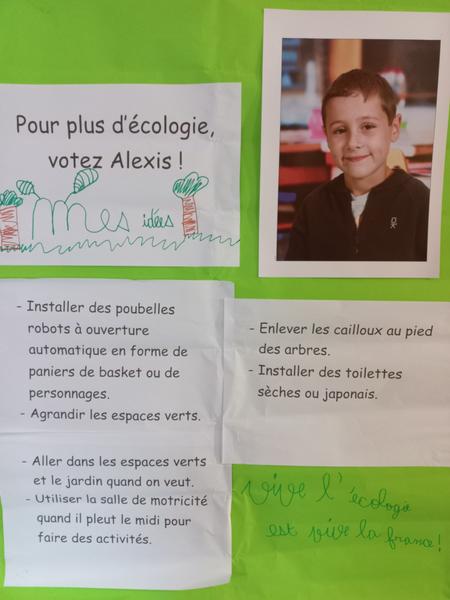 Pour plus d'écologie,
votez Alexis !
Mes idées
- Installer des poubelles
robots à ouverture
automatique en forme de
paniers de basket ou de
personnages.
- Agrandir les espaces verts.
- Aller dans les espaces verts
et le jardin quand on veut.
- Utiliser la salle de motricité
quand il pleut le midi pour
faire des activités.
- Enlever les cailloux au pied
des arbres.
- Installer des toilettes
sèches ou japonais.
vive l'écologie
est vive la france!